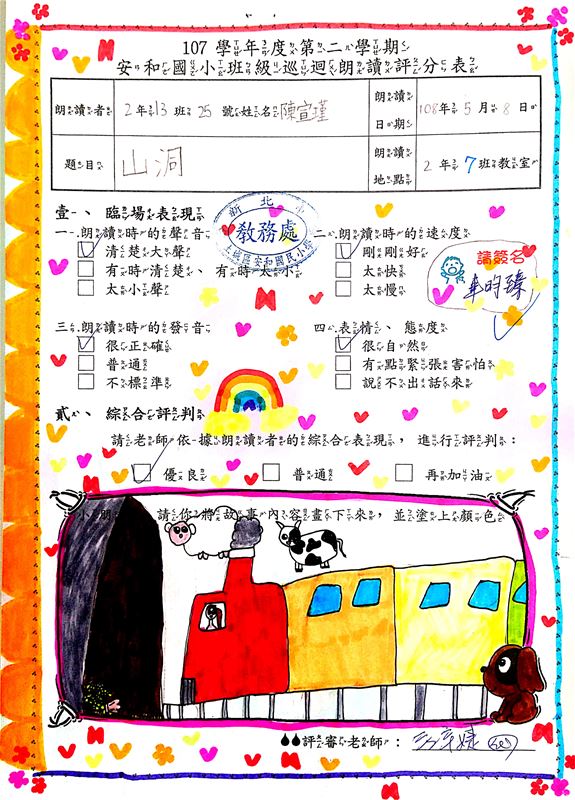 107 學年度第二學期
安和國小班級巡迴朗讀評分表
朗讀者 2年13班25號姓名陳宣瑾 朗讀日期 108年5月8日
題目 山洞 朗讀地點 2年7班教室
壹、臨場表現
新北市
教務處
土城區安和國民小學
一.朗讀時的聲音 二.朗讀時的速度
清楚大聲 剛剛好
有時清楚、有時太小 太快
太小聲 太慢
請簽名
三.朗讀時的發音 四.表情、態度
很正確 很自然
普通 有點緊張害怕
不標準 說不出話來
貳、綜合評判
請老師依據朗讀者的綜合表現，進行評判：
優良 普通 再加油
請你將故事內容畫下來，並塗上顏色
評審老師：